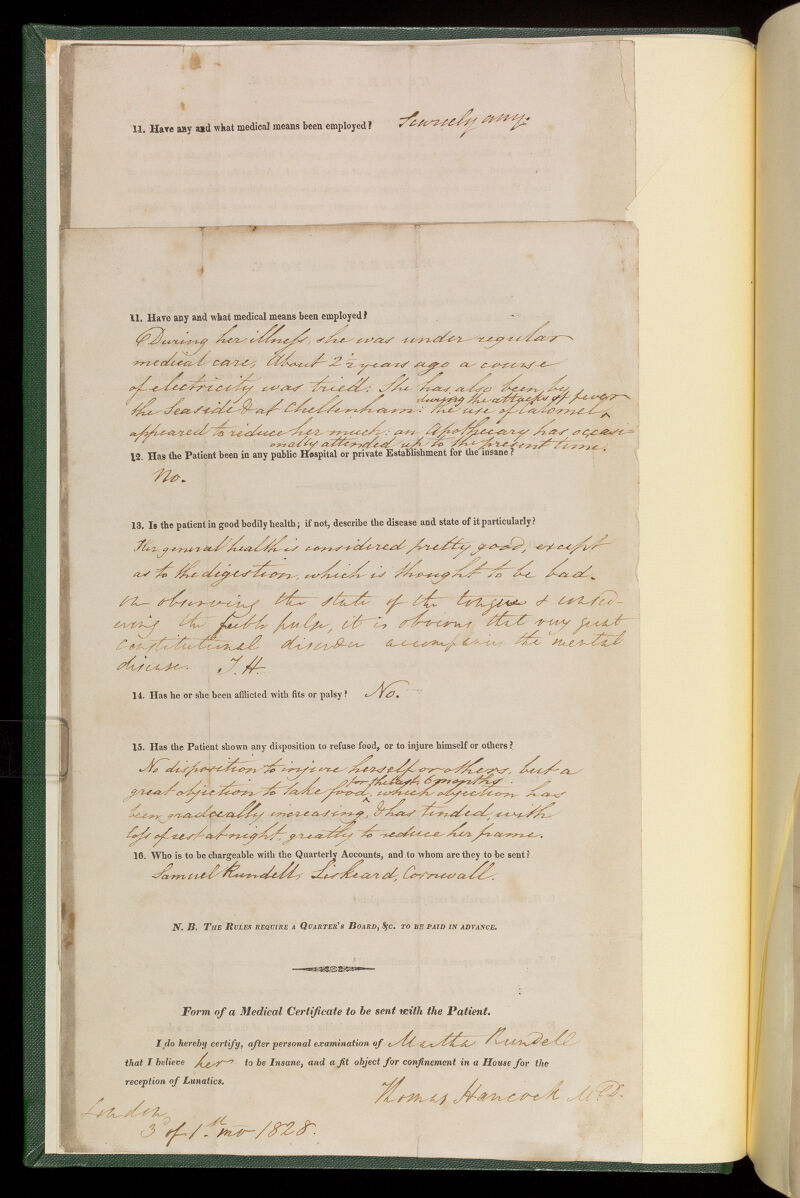 11. Have any and what medical means been employed? Scarcely any.
11. Have any and what medical means been employed?
During her illness, she was under regular
medical care, About 2½ years ago a course
of electricity was tried: She has also been by
during the attacks of fever
the Seaside & at Cheltenham: the use of Calomel ^
appeared to reduce her much: an Apothecary has occasi=
onally attended up to the present time.
12. Has the Patient been in any public Hospital or private Establishment for the insane?
No.
13. Is the patient in good bodily health; if not, describe the disease and state of it particularly?
Her general health is considered pretty good, except
as to the digestion, which is thought to be bad.
On observing the state of the tongue & consid-
ering the feeble pulse, it is obvious that very great
constitutional disorder accompanies the mental
disease. T. H.
14. Has he or she been afflicted with fits or palsy? No.
15. Has the Patient shown any disposition to refuse food, or to injure himself or others?
No disposition to injure herself or others, but a
for the last 6 months
great objection to take food ^, which objection has
been gradually increasing, & has tended, with
loss of rest at night, greatly to reduce her frame.
16. Who is to be chargeable with the Quarterly Accounts, and to whom are they to be sent?
Samuel Rundell, Liskeard, Cornwall.
N. B. The Rules require a Quarter's Board, &c. to be paid in advance.
Form of a Medical Certificate to be sent with the Patient.
I do hereby certify, after personal examination of Martha Rundell
that I believe her to be Insane, and a fit object for confinement in a House for the
reception of Lunatics.
Thomas Hancock M.D.
London,
3d of 1st mo 1828.